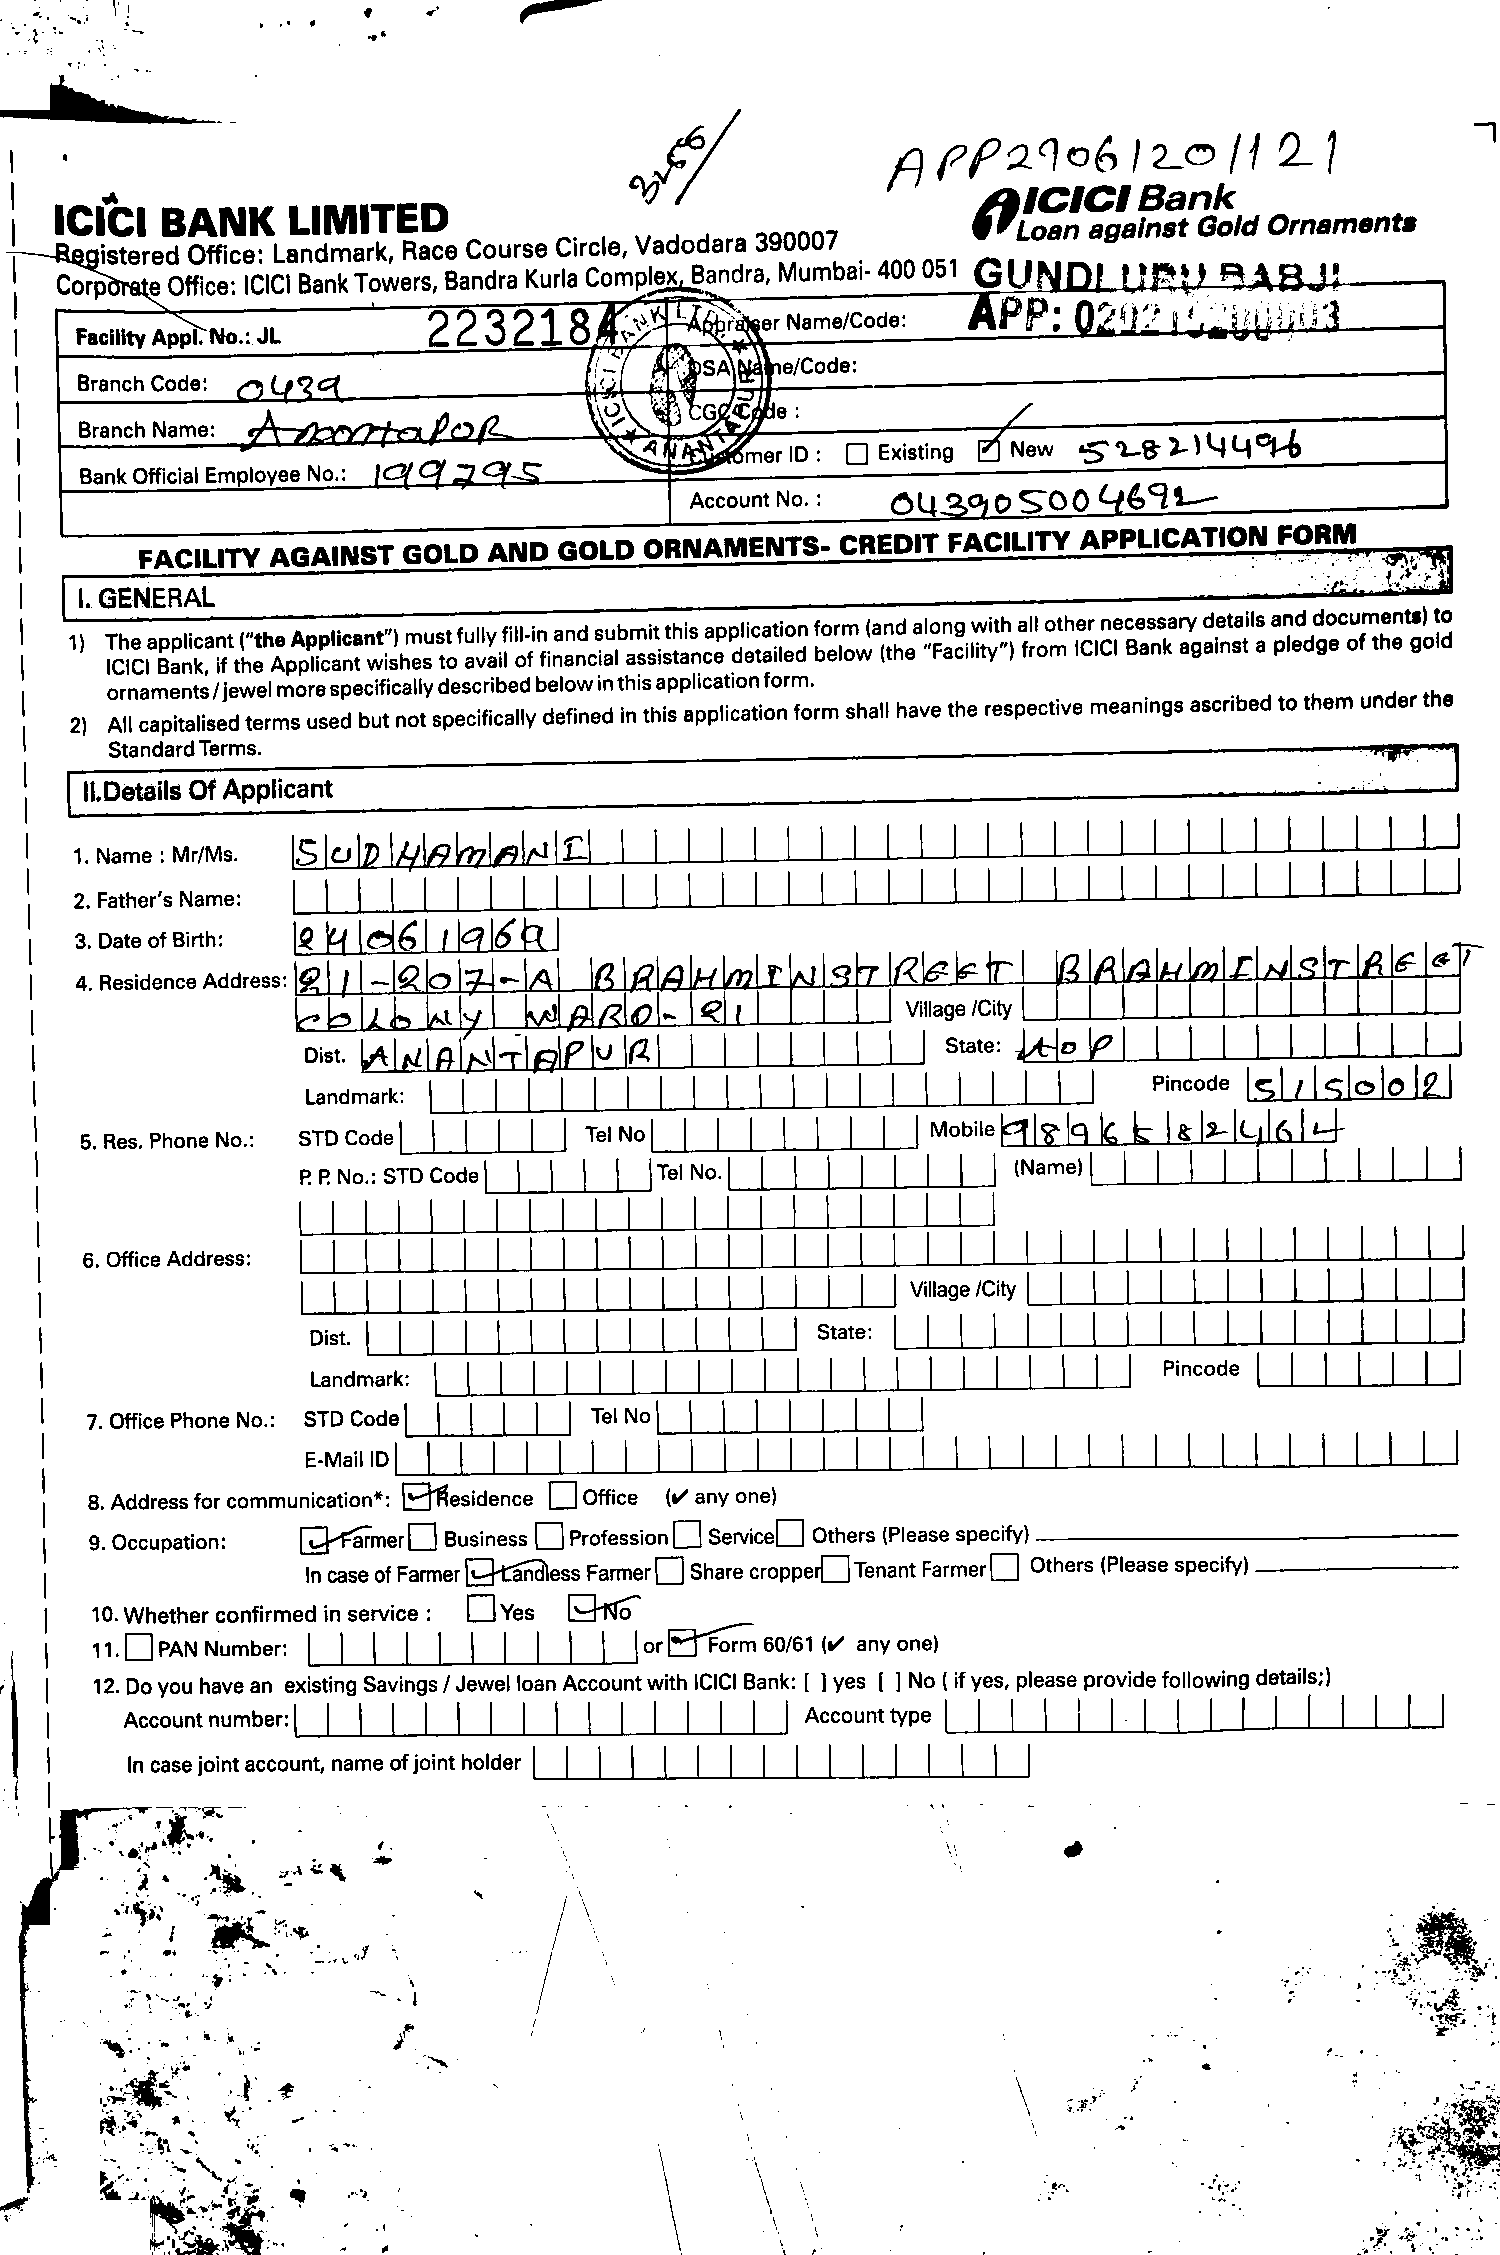 3256/
APP29061201121
ICICI BANK LIMITED
Registered Office: Landmark, Race Course Circle, Vadodara 390007
Corporate Office: ICICI Bank Towers, Bandra Kurla Complex, Bandra, Mumbai- 400 051
ICICI Bank
Loan against Gold Ornaments
GUNDLURU BABJI
APP:
Facility Appl. No.: JL 2232184
Appraiser Name/Code:
Branch Code: 0439
DSA Name/Code:
Branch Name: AnantaPOR
CGC Code :
Bank Official Employee No.: 199795
Customer ID : Existing New 528214496
Account No. : 043905004692
ICICI BANK LTD. ★ ANANTAPUR ★
FACILITY AGAINST GOLD AND GOLD ORNAMENTS- CREDIT FACILITY APPLICATION FORM
I. GENERAL
1) The applicant ("the Applicant") must fully fill-in and submit this application form (and along with all other necessary details and documents) to
ICICI Bank, if the Applicant wishes to avail of financial assistance detailed below (the "Facility") from ICICI Bank against a pledge of the gold
ornaments / jewel more specifically described below in this application form.
2) All capitalised terms used but not specifically defined in this application form shall have the respective meanings ascribed to them under the
Standard Terms.
II.Details Of Applicant
1. Name : Mr/Ms. SUDHAMANI
2. Father's Name:
3. Date of Birth: 24061969
4. Residence Address: 21-207-A BRAHMINSTREET BRAHMINSTREET
COLONY WARD-21 Village /City
Dist. ANANTAPUR State: A.P
Landmark: Pincode 515002
5. Res. Phone No.: STD Code Tel No Mobile 9896582464
P. P. No.: STD Code Tel No. (Name)
6. Office Address:
Village /City
Dist. State:
Landmark: Pincode
7. Office Phone No.: STD Code Tel No
E-Mail ID
8. Address for communication*: Residence Office (✔ any one)
9. Occupation: Farmer Business Profession Service Others (Please specify)
In case of Farmer Landless Farmer Share cropper Tenant Farmer Others (Please specify)
10. Whether confirmed in service : Yes No
11. PAN Number: or Form 60/61 (✔ any one)
12. Do you have an existing Savings / Jewel loan Account with ICICI Bank: [ ] yes [ ] No ( if yes, please provide following details;)
Account number: Account type
In case joint account, name of joint holder